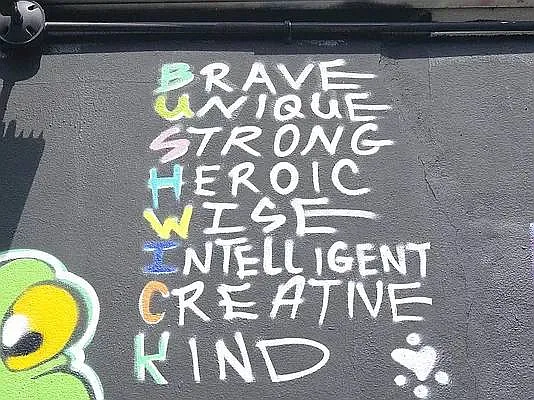 BRAVE
UNIQUE
STRONG
HEROIC
WISE
INTELLIGENT
CREATIVE
KIND